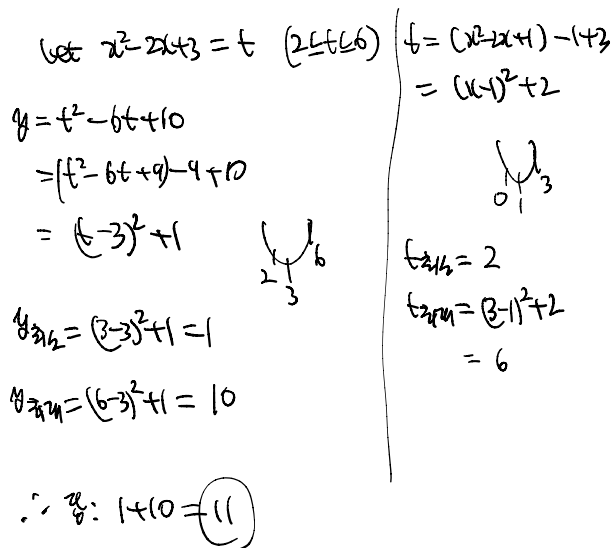 let x²-2x+3 = t (2≤t≤6)
y = t²-6t+10
= (t²-6t+9)-9+10
= (t-3)²+1
2 3 6
y최소 = (3-3)²+1 = 1
y최대 = (6-3)²+1 = 10
∴ 합: 1+10 = 11
t = (x²-2x+1)-1+3
= (x-1)²+2
0 1 3
t최소 = 2
t최대 = (3-1)²+2
= 6